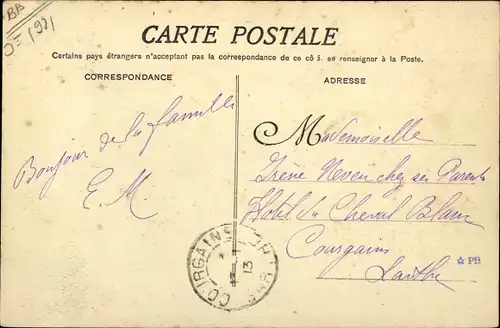 BB
CARTE POSTALE
Certains pays étrangers n'acceptant pas la correspondance de ce côté, se renseigner à la Poste.
CORRESPONDANCE
ADRESSE
Bonjour de la famille
E. M.
Mademoiselle
Irène Neveu chez ses Parents
Hôtel du Cheval Blanc
Courgains
Sarthe
COURGAINS
13
PB